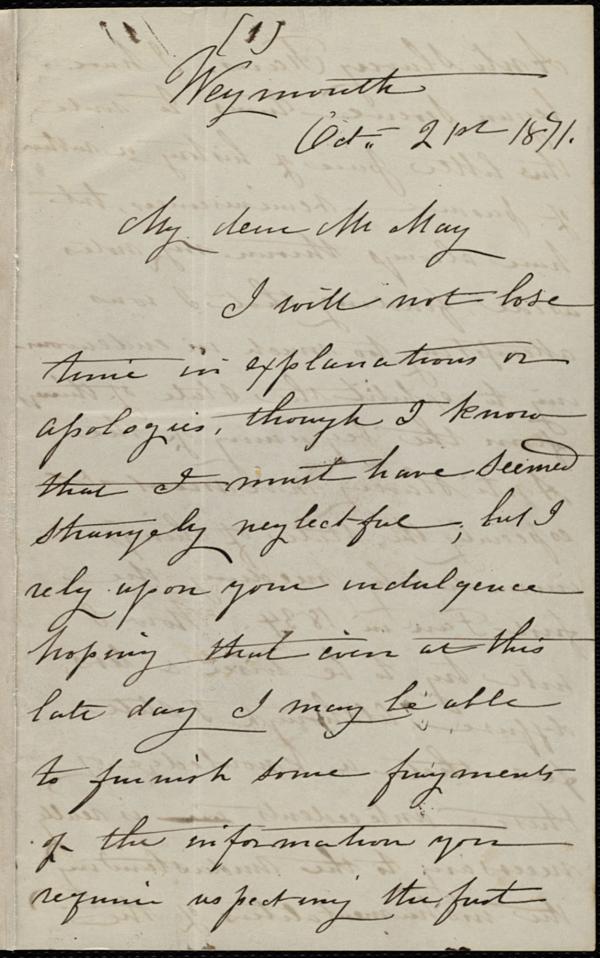 [1]
Weymouth
Oct. 21st 1871.
My dear Mr May
I will not lose
time in explanations or
apologies, though I know
that I must have seemed
strangely neglectful, but I
rely upon your indulgence
hoping that even at this
late day I may be able
to furnish some fragments
of the information you
require respecting the first